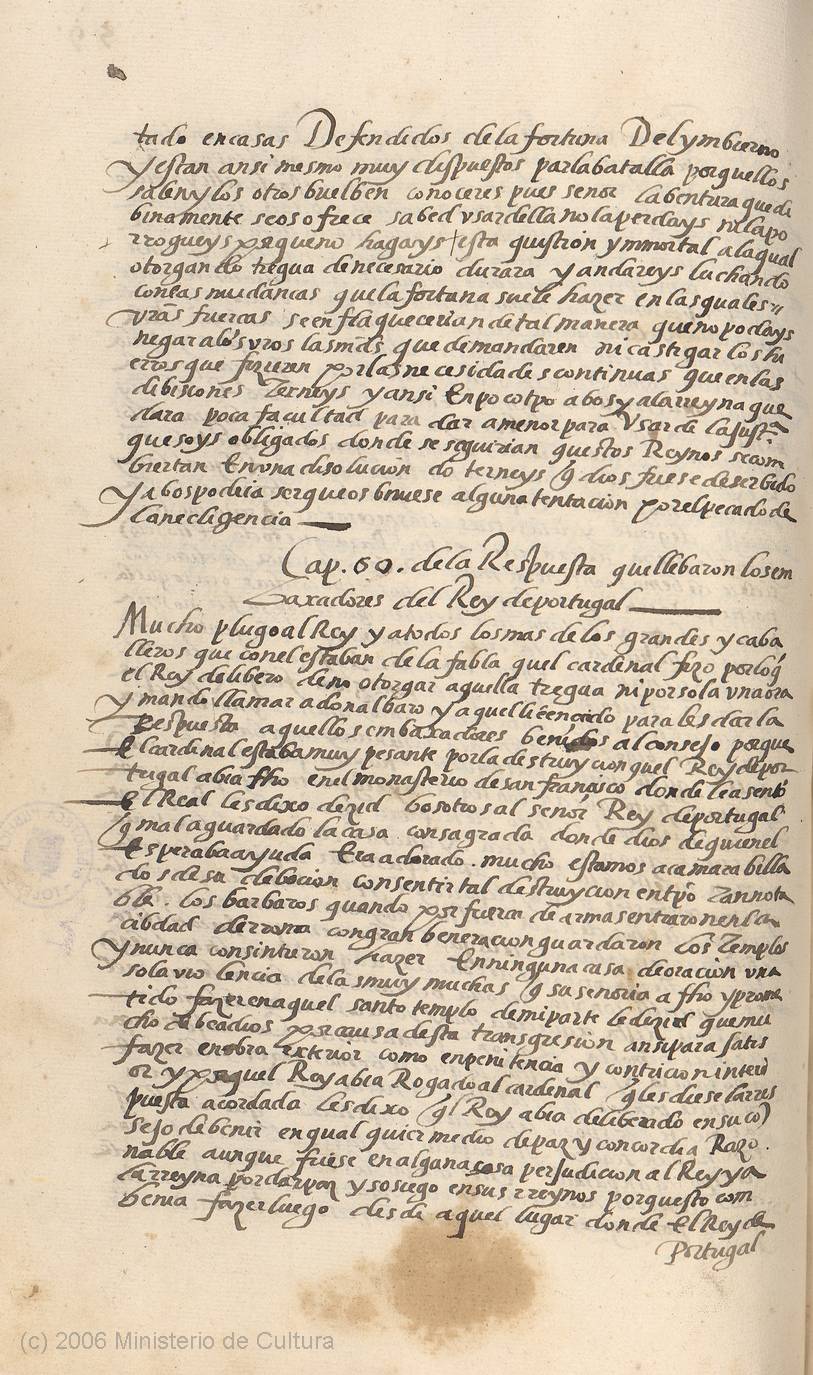 tado en casas Defendidos de la fortuna Del ymbierno
y estan ansi mesmo muy dispuestos par la batalla porque llos
salen y los otros buelben conoceres pues señor la bentura que di
binamente se os ofrece sabed vsar della no la perdays ni la po
rrogueys porque no hagays esta quistion ymmortal a la qual
otorgando tregua de necesario durara y andareys luchando
con las mudancas que la fortuna suele hazer en las quales
vras fuercas se enflaquecerian de tal manera que no podays
negar a los vros las mds que demandaren ni castigar los hi
erros que fizieren por las necesidades continuas que en las
dibisiones terneys y ansi En poco tpo a bos y a la rreyna que
dara poca facultad para dar a menor para Vsar de la justa
que soys obligados donde se seguirian questos Reynos se com
biertan En vna disolucion do terneys q dios fuese deserbido
y a bos podria ser que os biniese alguna tentacion por el pecado de
la necligencia
Cap. 60. de la Respuesta que llebaron los em
baxadores del Rey de portugal
Mucho plugo al Rey y a todos los mas de los grandes y caba
lleros que con el estaban de la fabla quel cardenal fizo por lo q
el Rey delibero de no otorgar aquella tregua ni por sola vna ora
y mando llamar a don albaro y a quel licenciado para les dar la
Respuesta a quellos embaxadores benidos al consejo porque
El cardenal estaba muy pesante por la destruycion quel Rey de por
tugal abia ffho en el monasterio de san francisco donde le asento
El Real les dixo dezid bosotros al señor Rey de portugal
q mal a guardado la casa consagrada donde dios de quien el
Esperaba ayuda Era adorado. mucho estamos a camarabilla
dos de su debocion consentir tal destruycion en tpo tan nota
ble. los barbaros quando por fuerca de armas entraron en la
cibdad de rroma con gran beneracion guardaron los Templos
y nunca consintieron hazer En ninguna casa de oracion vna
sola violencia de las muy muchas q su señoria a ffho y prome
tido fazer en aquel santo templo de mi parte le dezid que mu
cho debe a dios por causa desta transgresion ansi para satis
fazer en obra exterior como en penitencia y contricion interi
or y porquel Rey abia Rogado al cardenal q les diese la rres
puesta acordada les dixo ql Rey abia deliberado en su co
sejo de benir en qual quier medio de paz y concordia Razo
nable aunque fuese en alguna cosa perjudicion al Rey y a
la rreyna por dar paz y sosiego en sus rreynos por questo com
benia fazer luego desde aquel lugar donde El Rey de
Portugal
(c) 2006 Ministerio de Cultura